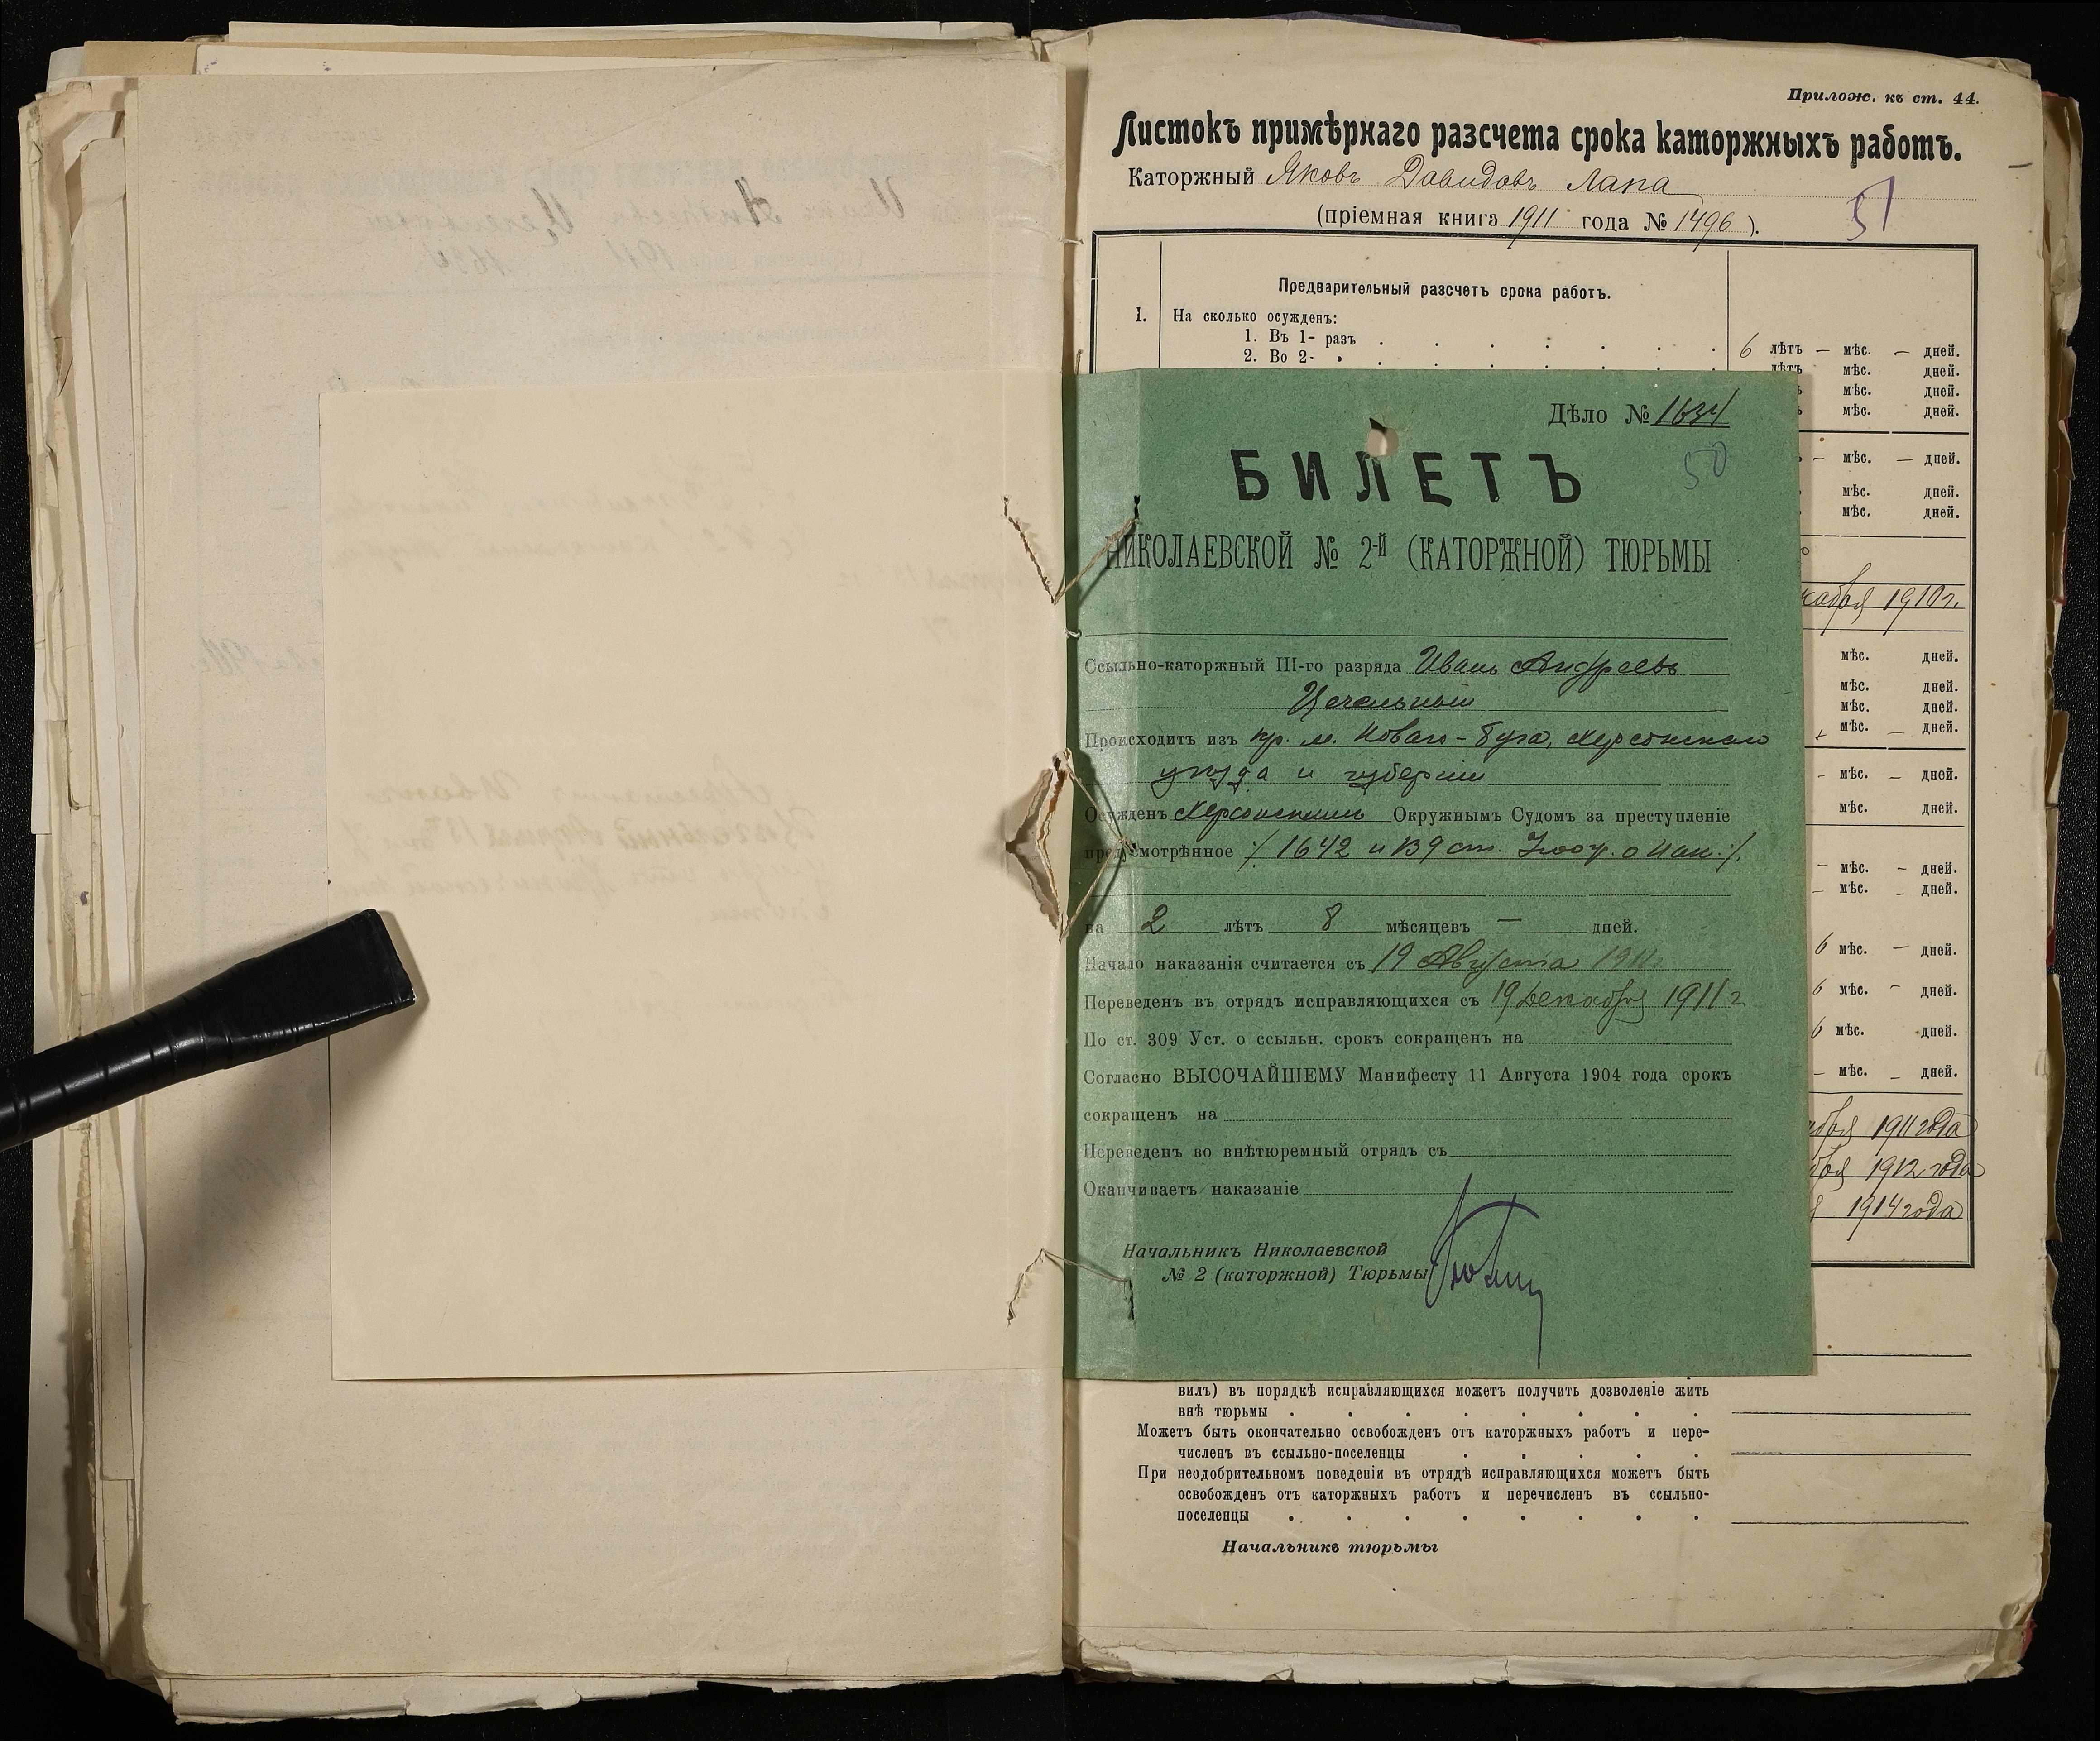 Прилож. къ ст. 44.
Листокъ примѣрнаго разсчета срока каторжныхъ работъ.
Каторжный Яковъ Давидовъ Лапа
51
(пріемная книга 1911 года № 1496).
Предварительный разсчетъ срока работъ.
1. На сколько осужденъ:
1. Въ 1- разъ
6 лѣтъ — мѣс. — дней.
2. Во 2- »
лѣтъ мѣс. дней.
мѣс. дней.
мѣс. дней.
— мѣс. — дней.
мѣс. дней.
мѣс. дней.
1910 г.
мѣс. дней.
мѣс. дней.
мѣс. дней.
мѣс. — дней.
— мѣс. — дней.
мѣс. дней.
— мѣс. — дней.
— мѣс. — дней.
6 мѣс. — дней.
6 мѣс. — дней.
6 мѣс. дней.
— мѣс. — дней.
1911 года
1912 года
1914 года
Дѣло № 1634
50
БИЛЕТЪ
НИКОЛАЕВСКОЙ № 2-й (КАТОРЖНОЙ) ТЮРЬМЫ
Ссыльно-каторжный III-го разряда Иванъ Андреевъ
Цегельный
Происходитъ изъ кр. м. Новаго-Буга, Херсонскаго
уѣзда и губерніи
Осужденъ Херсонскимъ Окружнымъ Судомъ за преступленіе
предусмотрѣнное /1642 и 139 ст. Улож. о Нак./.
на 2 лѣтъ 8 мѣсяцевъ — дней.
Начало наказанія считается съ 19 Августа 1911 г.
Переведенъ въ отрядъ исправляющихся съ 19 Декабря 1911 г.
По ст. 309 Уст. о ссыльн. срокъ сокращенъ на
Согласно ВЫСОЧАЙШЕМУ Манифесту 11 Августа 1904 года срокъ
сокращенъ на
Переведенъ во внѣтюремный отрядъ съ
Оканчиваетъ наказаніе
Начальникъ Николаевской
№ 2 (каторжной) Тюрьмы
вилъ) въ порядкѣ исправляющихся можетъ получить дозволеніе жить
внѣ тюрьмы
Можетъ быть окончательно освобожденъ отъ каторжныхъ работъ и пере-
численъ въ ссыльно-поселенцы
При неодобрительномъ поведеніи въ отрядѣ исправляющихся можетъ быть
освобожденъ отъ каторжныхъ работъ и перечисленъ въ ссыльно-
поселенцы
Начальникъ тюрьмы